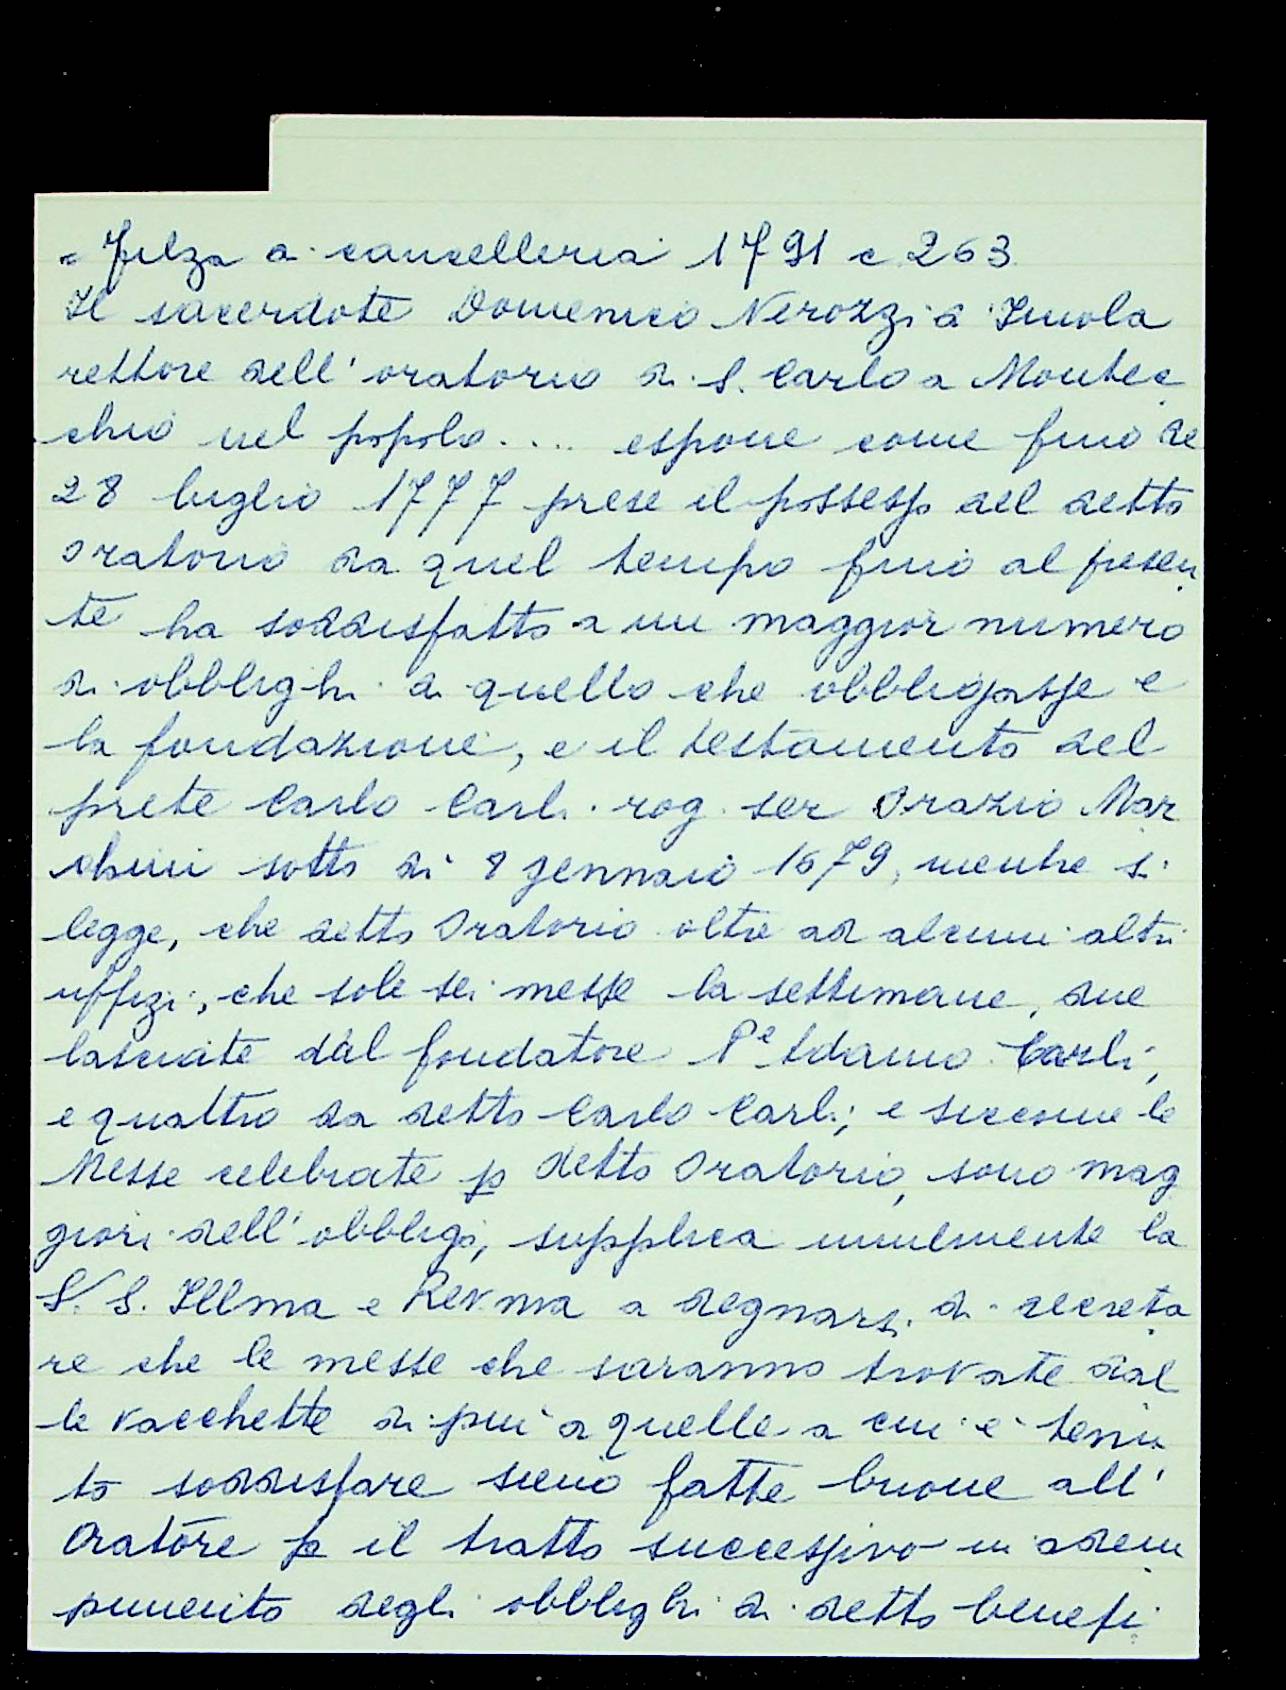 = Filza di cancelleria 1791 c 263
Il sacerdote Domenico Nerozzi di Imola
rettore dell'oratorio di S. Carlo a Montec
chio nel popolo.... espone come fino de
28 luglio 1777 prese il possesso del detto
oratorio da quel tempo fino al presen
te ha soddisfatto a un maggior numero
di obblighi di quello che obbligasse e
la fondazione, e il testamento del
prete Carlo Carli rog. ser Orazio Mar
chini sotto dì 8 gennaio 1679, mentre si
legge, che detto Oratorio oltre ad alcuni altri
uffizi, che sole sei messe la settimane, due
lasciate dal fondatore Pe Adamo Carli,
e quattro da detto Carlo Carli; e siccome le
Messe celebrate p detto Oratorio, sono mag
giori dell'obbligo, supplica umilmente la
S. S. Illma e Rev.ma a degnarsi di decreta
re che le messe che saranno trovate dal
le vacchette di più a quelle a cui è tenu
to soddisfare sieno fatte buone all'
Oratore p il tratto successivo in adem
pimento degli obblighi di detto benefi